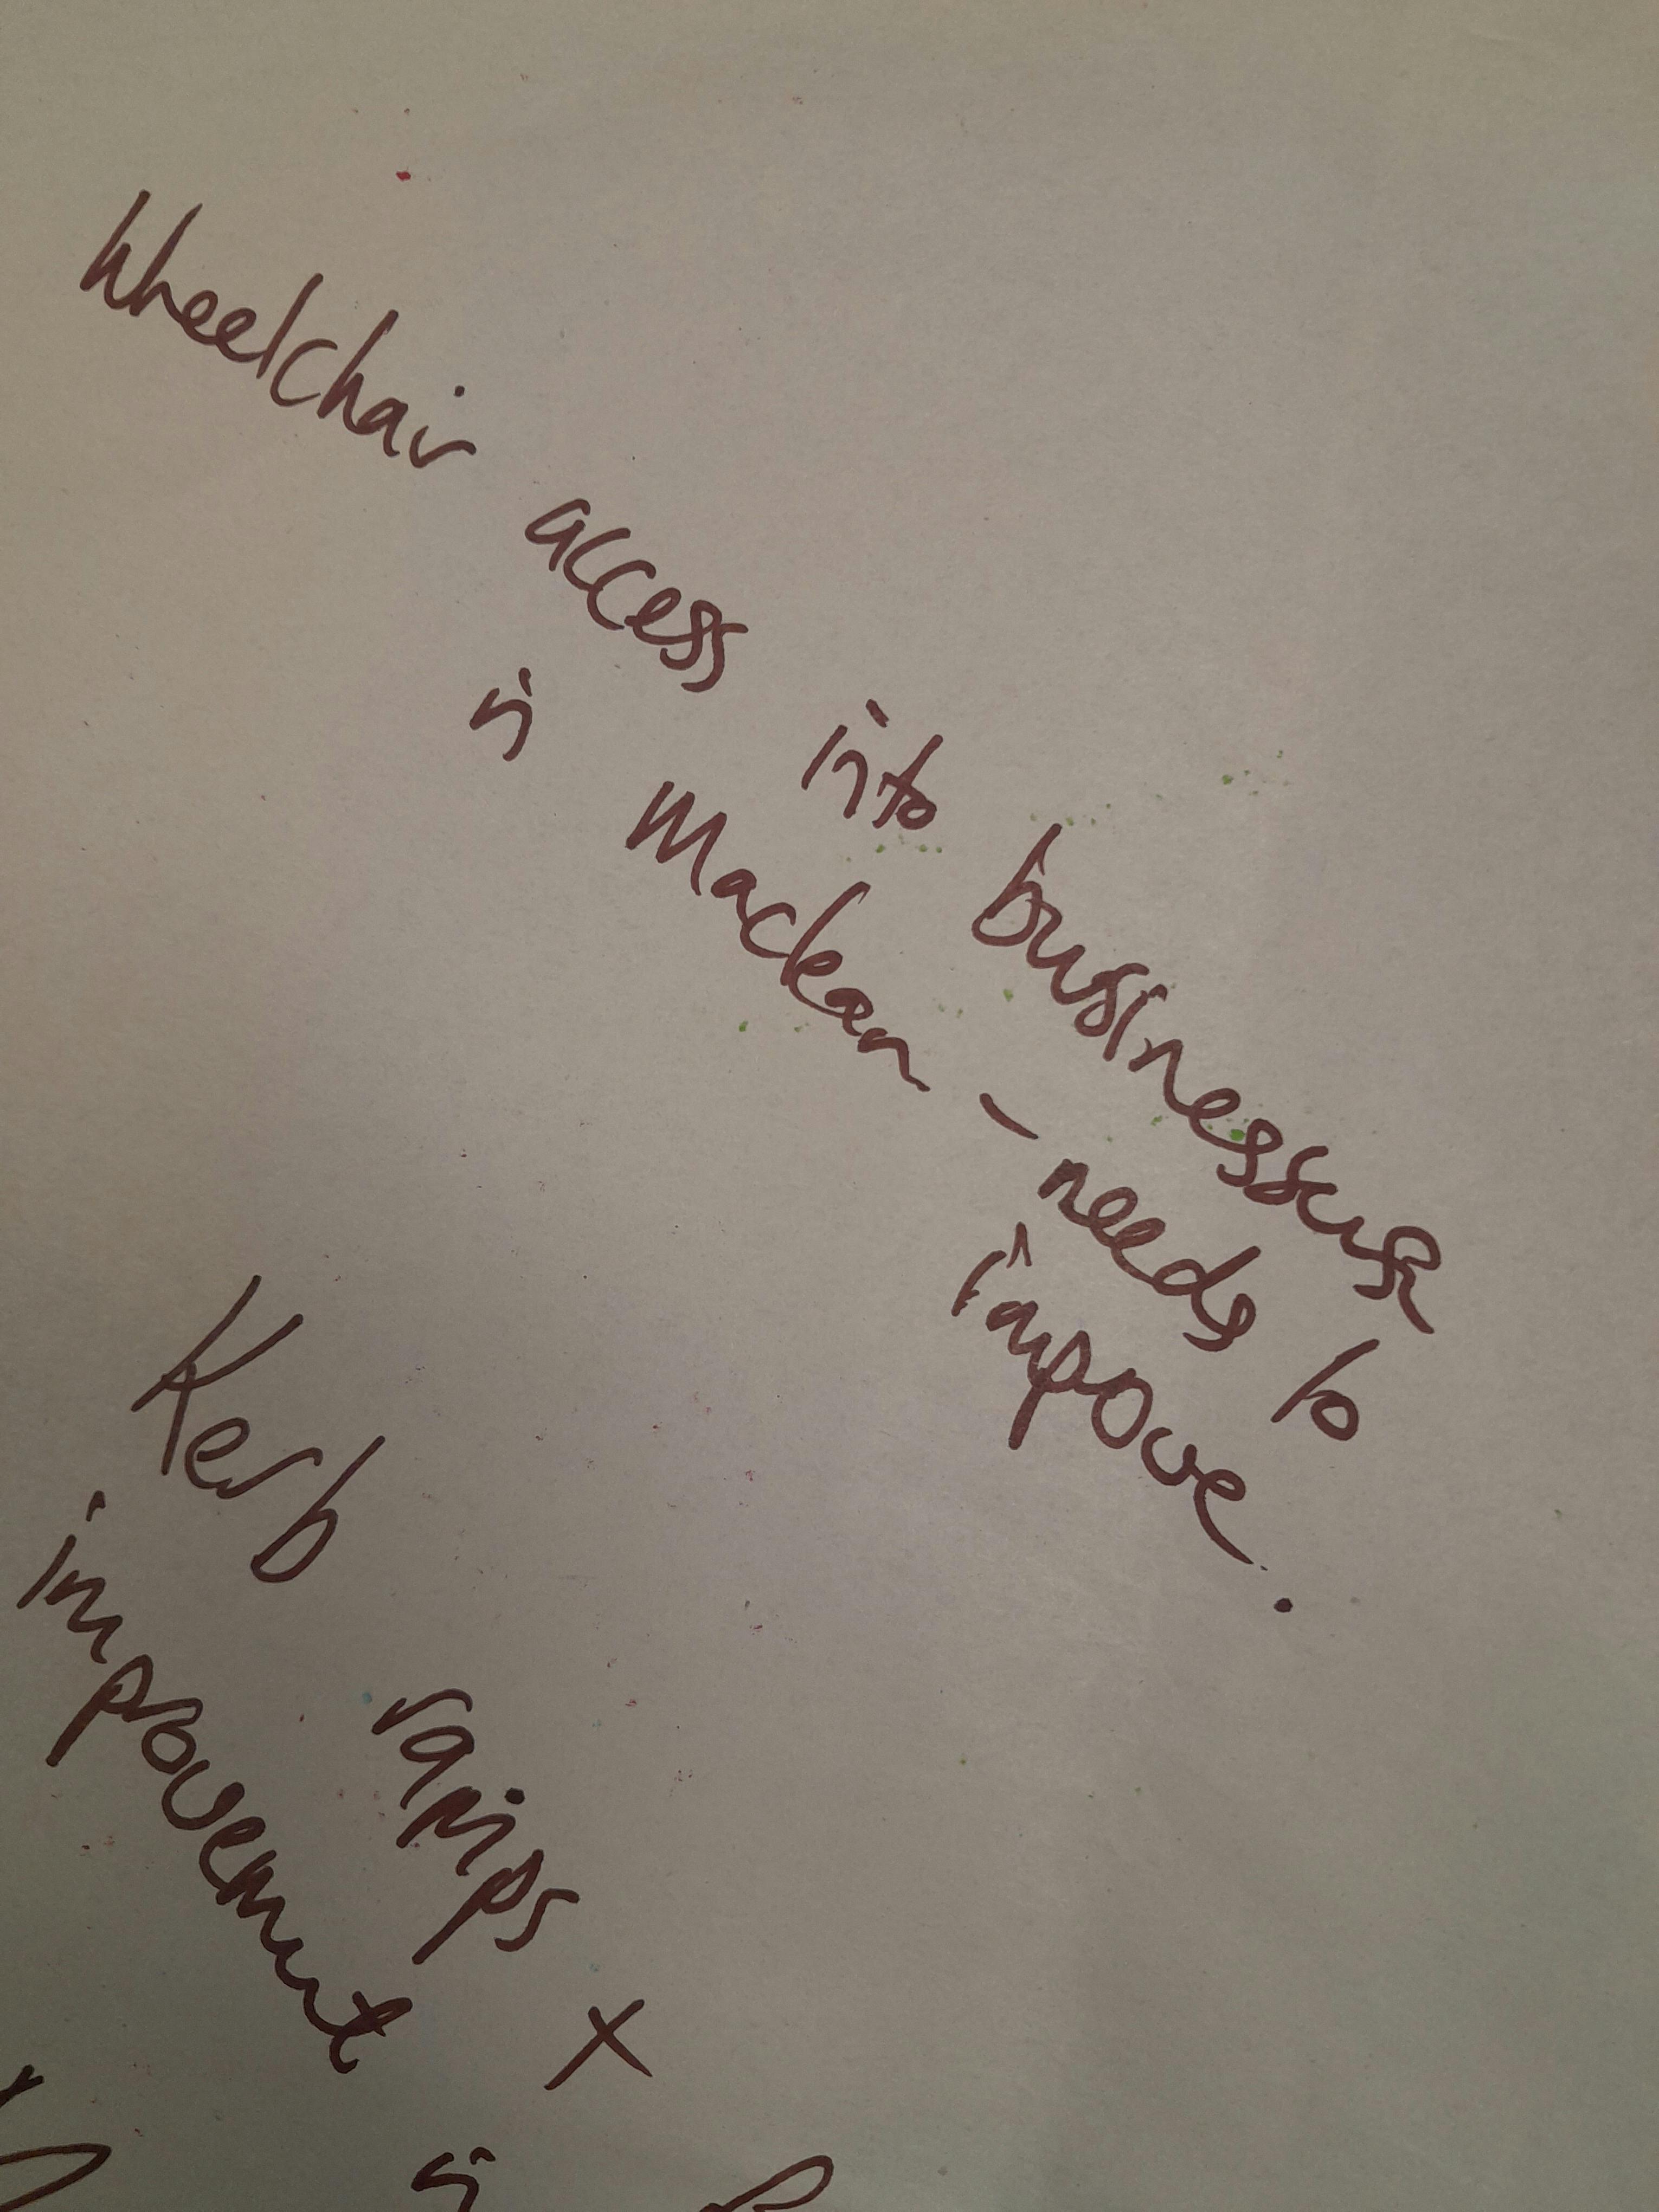 Wheelchair access into businesses
in Maclean - needs to
improve.
Kerb ramps +
improvement in